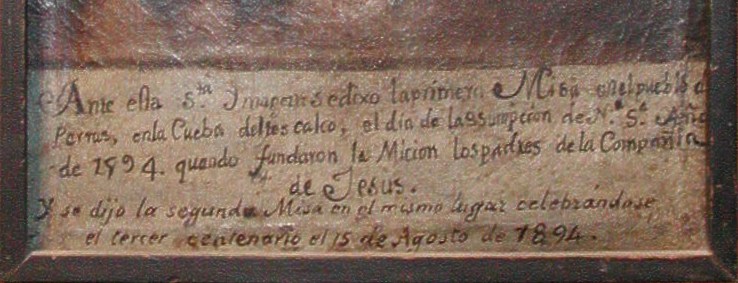 Ante esta S.ta Ymagen se dixo la primera Misa en el pueblo d
Parras, en la Cueba del tescalco, el dia de lassumpcion de N.a S.a Año
de 1594. quando fundaron la Micion los padres de la Compañia
de Jesus.
Y se dijo la segunda Misa en el mismo lugar celebrándose
el tercer centenario el 15 de Agosto de 1894.